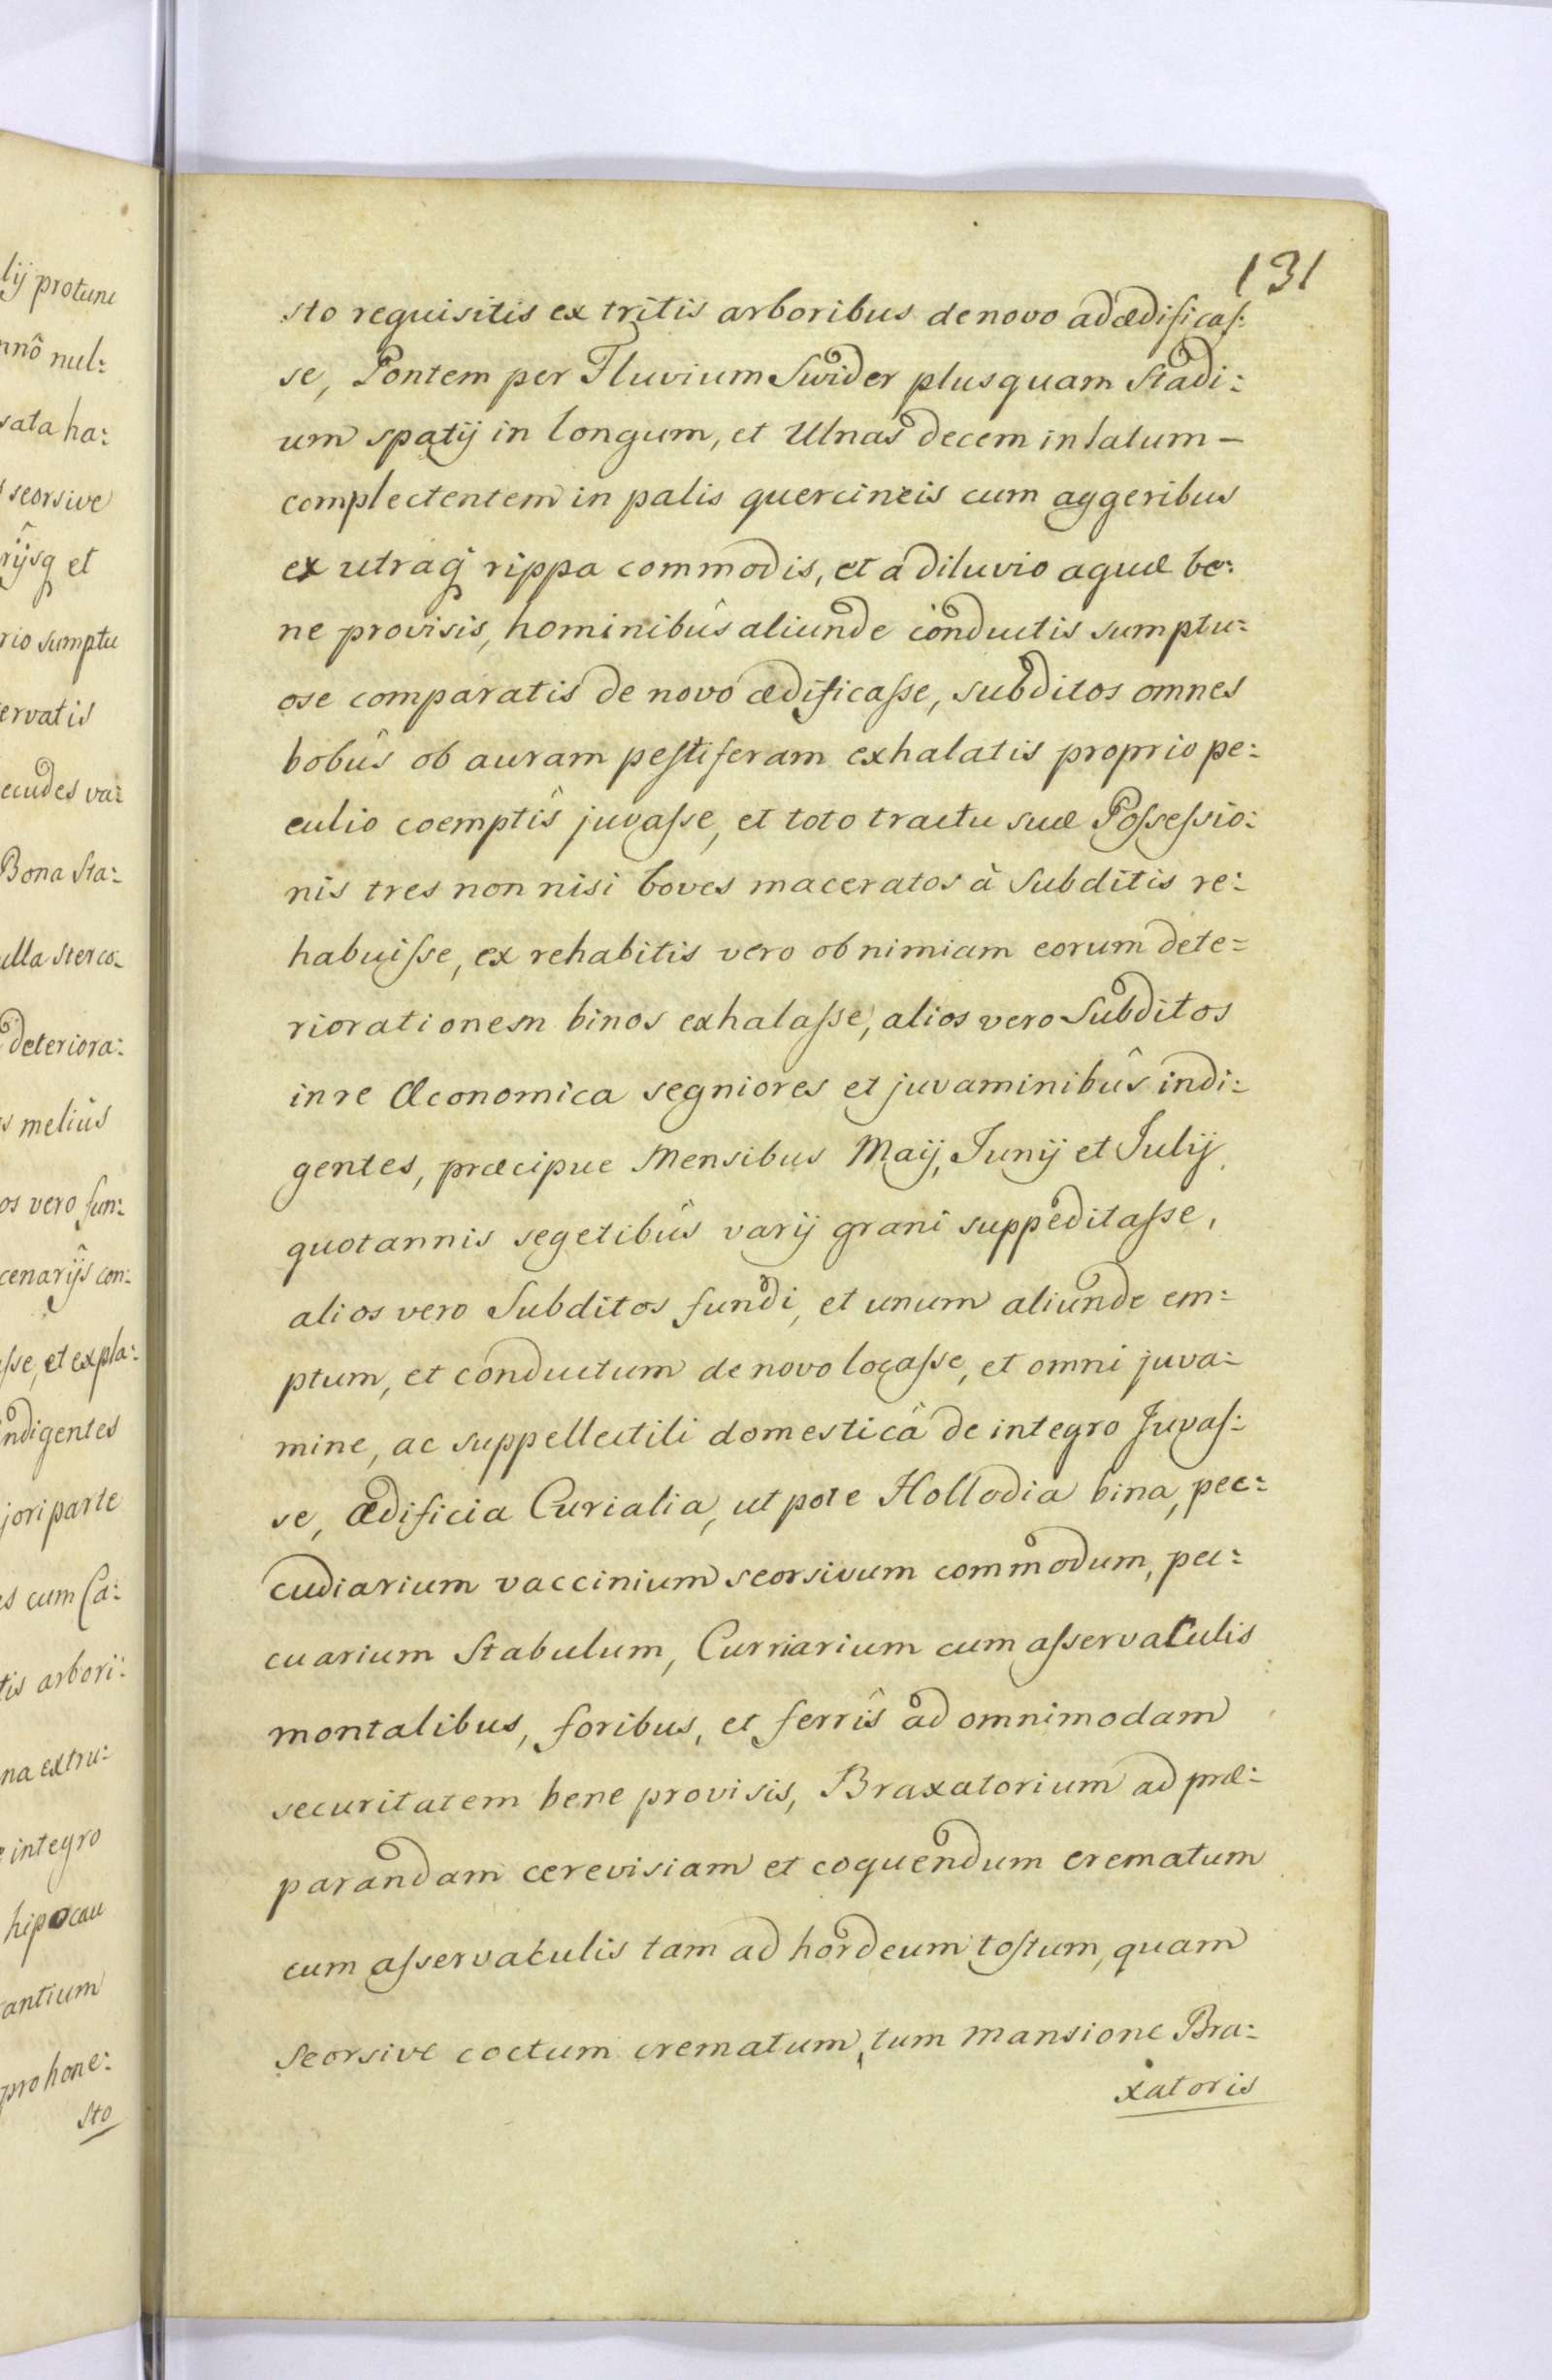 lij protunc
nnô nul:
sata ha:
seorsive
rijsq̃ et
rio sumptu
servatis
ecudes va:
Bona Sta:
ulla sterco:
deteriora:
s meliûs
os vero fun:
cenarijs con:
aſse, et expla:
indigentes
jori parte
es cum Ca:
tis arbori:
na extru:
e integro
hipocau
antium
pro hone:
sto
131
sto requisitis ex tritis arboribus de novo adædificaſ:
se, Pontem per Fluvium Swider plusquam Stadi:
um spatij in longum, et Ulnas decem in latum –
complectentem in palis quercineis cum aggeribus
ex utraq̃ rippa commodis, et á diluvio aquæ be:
ne provisis, hominibûs aliunde conductis sumptu:
ose comparatis de novo ædificaſse, subditos omnes
bobûs ob auram peſtiferam exhalatis proprio pe:
culio coemptîs juvaſse, et toto tractu suæ Poſseſsio:
nis tres non nisi boves maceratos à Subditis re:
habuiſse, ex rehabitis vero ob nimiam eorum dete:
riorationem binos exhalaſse, alios vero Subditos
in re Œconomica segniores et juvaminibûs indi:
gentes, præcipue Mensibus Maij, Junij et Julij
quotannis segetibûs varij grani suppeditaſse,
alios vero Subditos fundi, et unum aliunde em:
ptum, et conductum de novo locaſse, et omni juva:
mine, ac suppellectili domesticâ de integro Juvaſ:
se, Ædificia Curialia, ut pote Hollodia bina, pec:
cudiarium vaccinium seorsivum commodum, pec:
cuarium Stabulum, Curriarium cum aſservaculis
montalibus, foribus, et ferrîs ad omnimodam
securitatem bene provisis, Braxatorium ad præ:
parandam cerevisiam et coquendum crematum
cum aſservaculis tam ad hordeum toſtum, quam
seorsive coctum crematum, tum mansione Bra:
xatoris